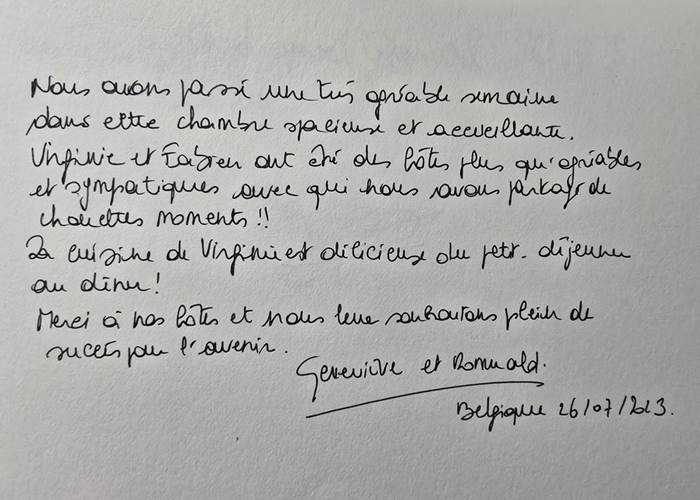 Nous avons passé une très agréable semaine
dans cette chambre spacieuse et accueillante.
Virginie et Fabien ont été des hôtes plus qu'agréables
et sympatiques avec qui nous avons partagé de
chouettes moments !!
La cuisine de Virginie est délicieuse du petit-déjeuner
au dîner !
Merci à nos hôtes et nous leur souhaitons plein de
succès pour l'avenir.
Geneviève et Romuald.
Belgique 26/07/2023.